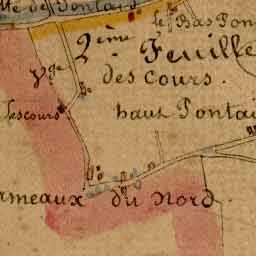 de Pontaid
le Bas Pon
2ème Feuille
Vge des Cours.
lescours
haut Pontai
rmeaux du Nord